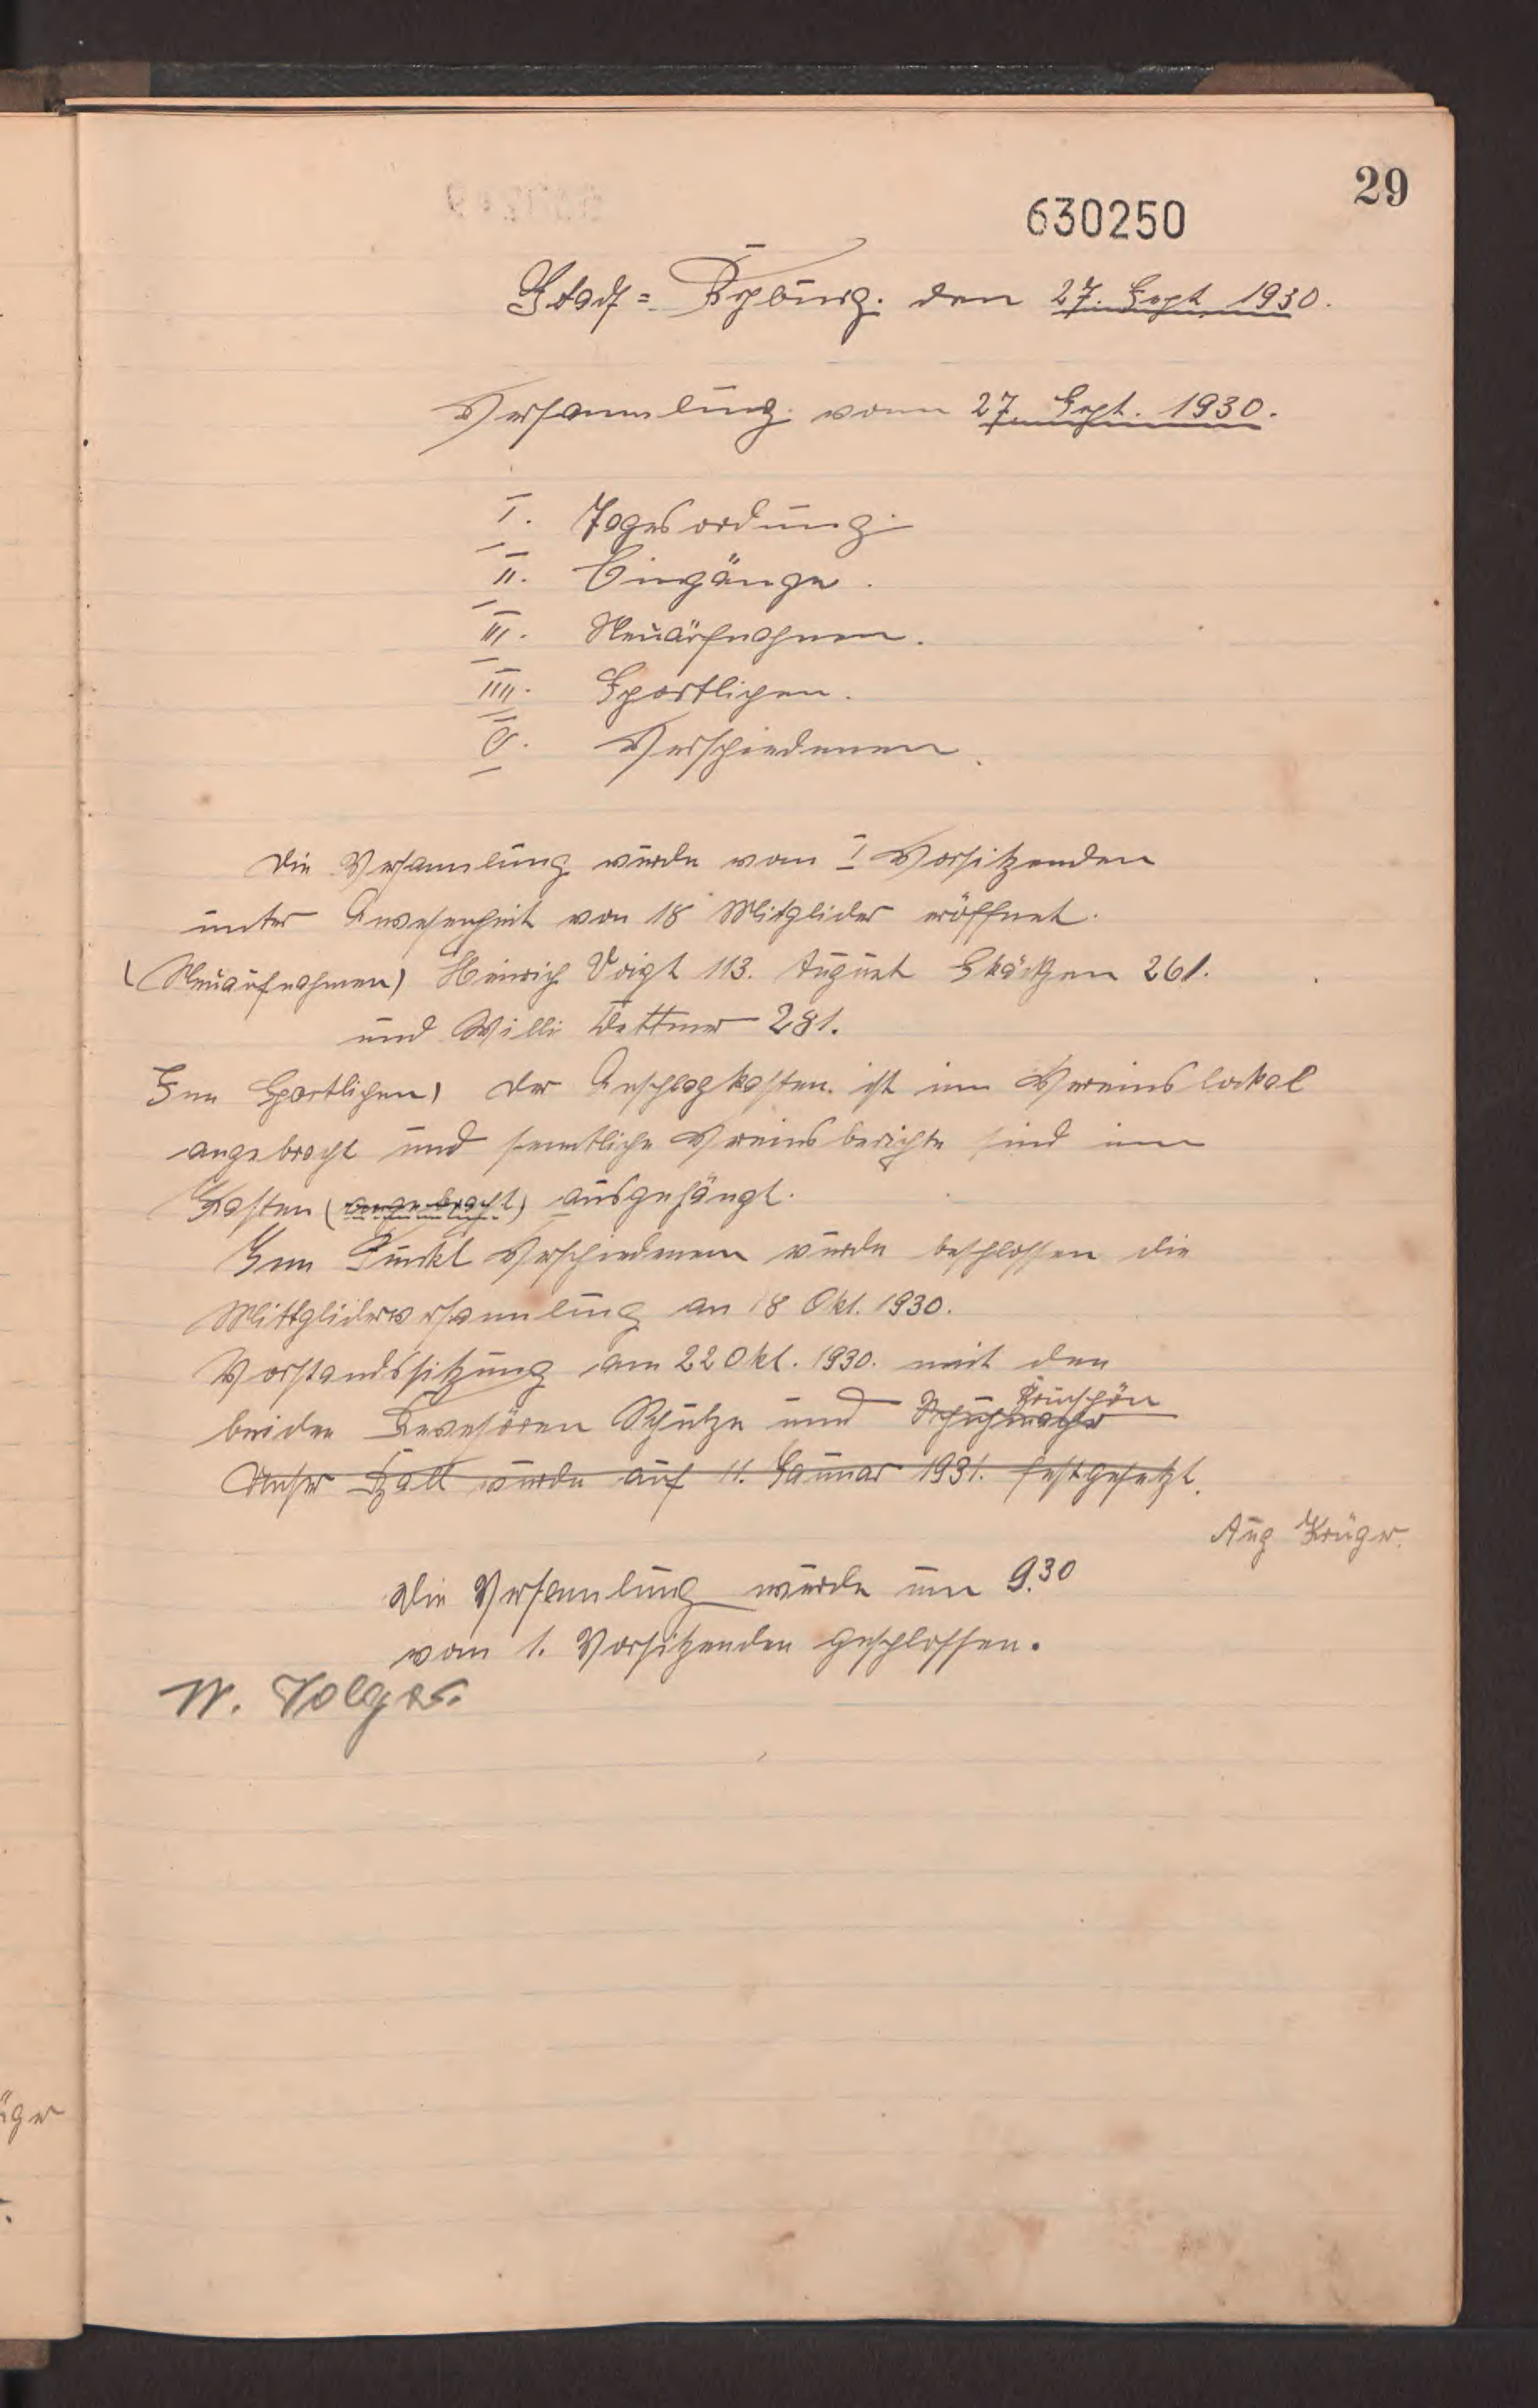 29
630250
Stadt=Rehburg. den 27. Sept 1930.
Versammlung vom 27. Sept. 1930.
I. Tagesordnung
II. Eingänge.
III. Neuaufnahmen.
IIII. Sportlichen.
V. Verschiedenen.
Die Versamlung wurde vom I Vorsitzenden
unter Anwesenheit von 18 Mitglider eröffnet.
(Neuaufnahmen) Heinrich Voigt 113. August 261.
und Willi Dettmer 281.
Im Sportlichen) Der Anschlagkasten ist im Vereinslockal
angebracht und semtliche Vereinsberichte sind im
Kasten (angebracht) ausgehängt.
Im Punkt Verschiedenem wurde beschlossen die
Mittgliderversammlung am 18 Okt. 1930.
Vorstandssitzung am 22 Okt. 1930. mit den
beiden Revesören Schulze und Schuhmacher
Unser Ball wurde auf 11. Januar 1931. festgesetzt.
Aug Krüger.
Die Versamlung wurde um 9.30
vom 1. Vorsitzenden geschlossen.
W. Volger.